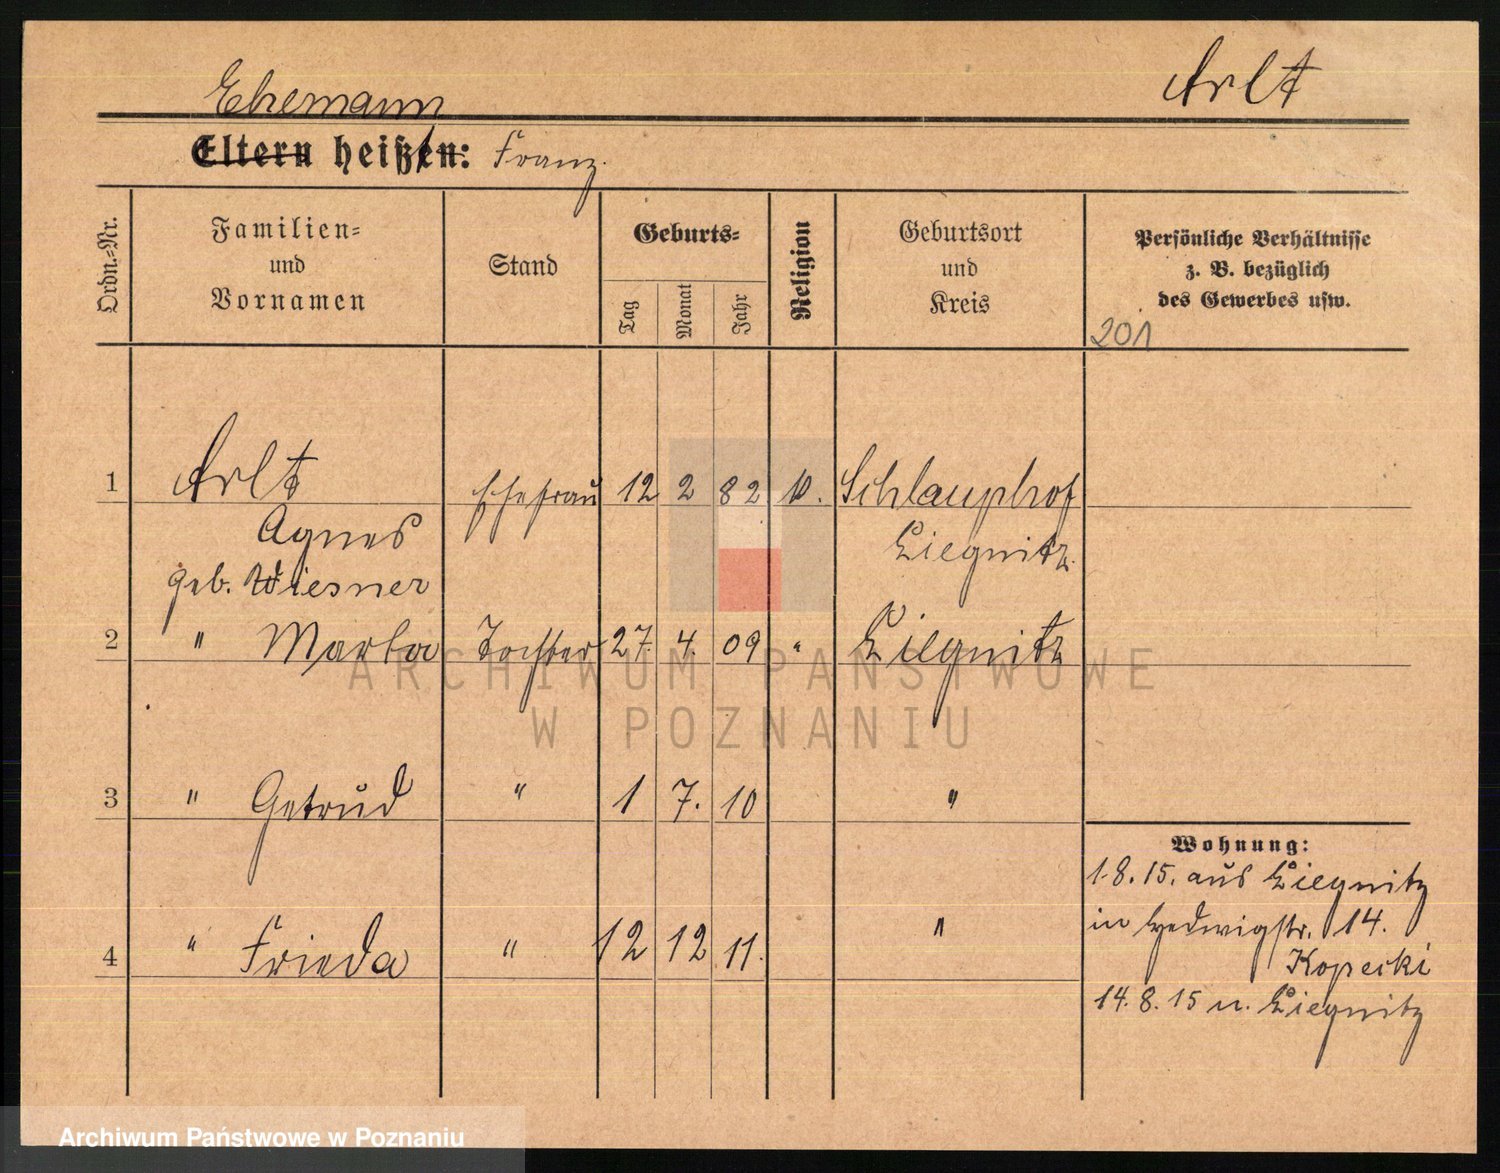 Arlt
Ehemann
Eltern heißen: Franz.
Ordn.-Nr.
Familien-
und
Vornamen
Stand
Geburts-
Tag
Monat
Jahr
Religion
Geburtsort
und
Kreis
Persönliche Verhältnisse
z. B. bezüglich
des Gewerbes usw.
201
1 Arlt Ehefrau 12 2 82 Schlauphof
Agnes Liegnitz.
geb. Wiesner
2 " Marta Tochter 27. 4. 09 " Liegnitz
3 " Getrud " 1 7. 10 "
Wohnung:
1.8.15. aus Liegnitz
in Hedwigstr. 14.
Kopecki
4 " Frieda " 12 12 11. "
14.8.15 n. Liegnitz
ARCHIWUM PAŃSTWOWE
W POZNANIU
Archiwum Państwowe w Poznaniu